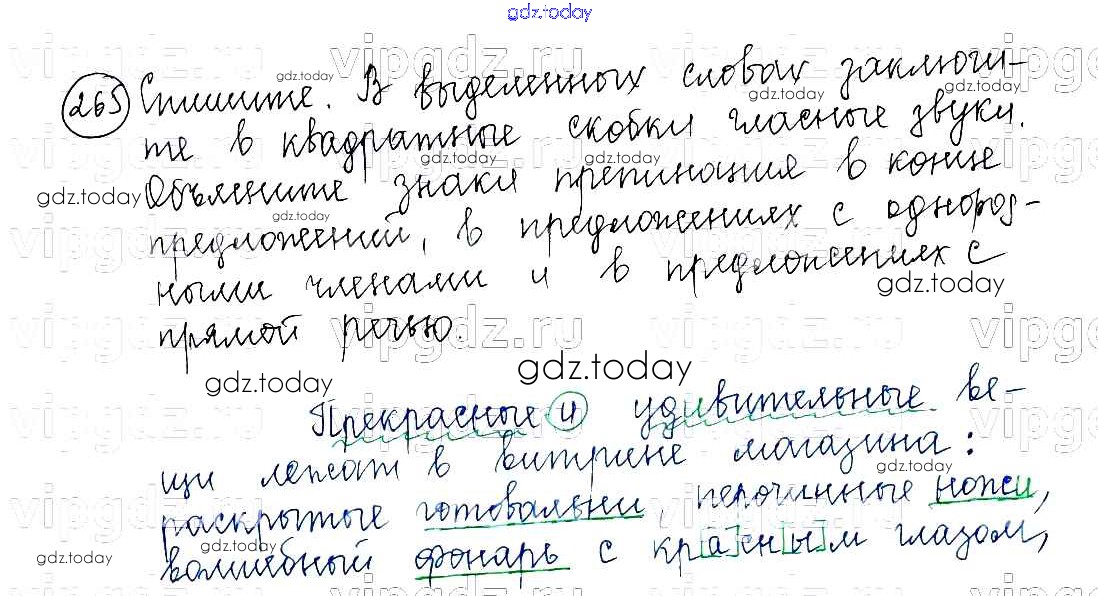 gdz.today
265 Спишите. В выделенных словах заключи-
те в квадратные скобки гласные звуки.
Объясните знаки препинания в конце
предложений, в предложениях с однород-
ными членами и в предложениях с
прямой речью.
Прекрасные и удивительные ве-
щи лежат в витрине магазина:
раскрытые готовальни, перочинные ножи,
волшебный фонарь с кр[а]сн[ы]м глазом,